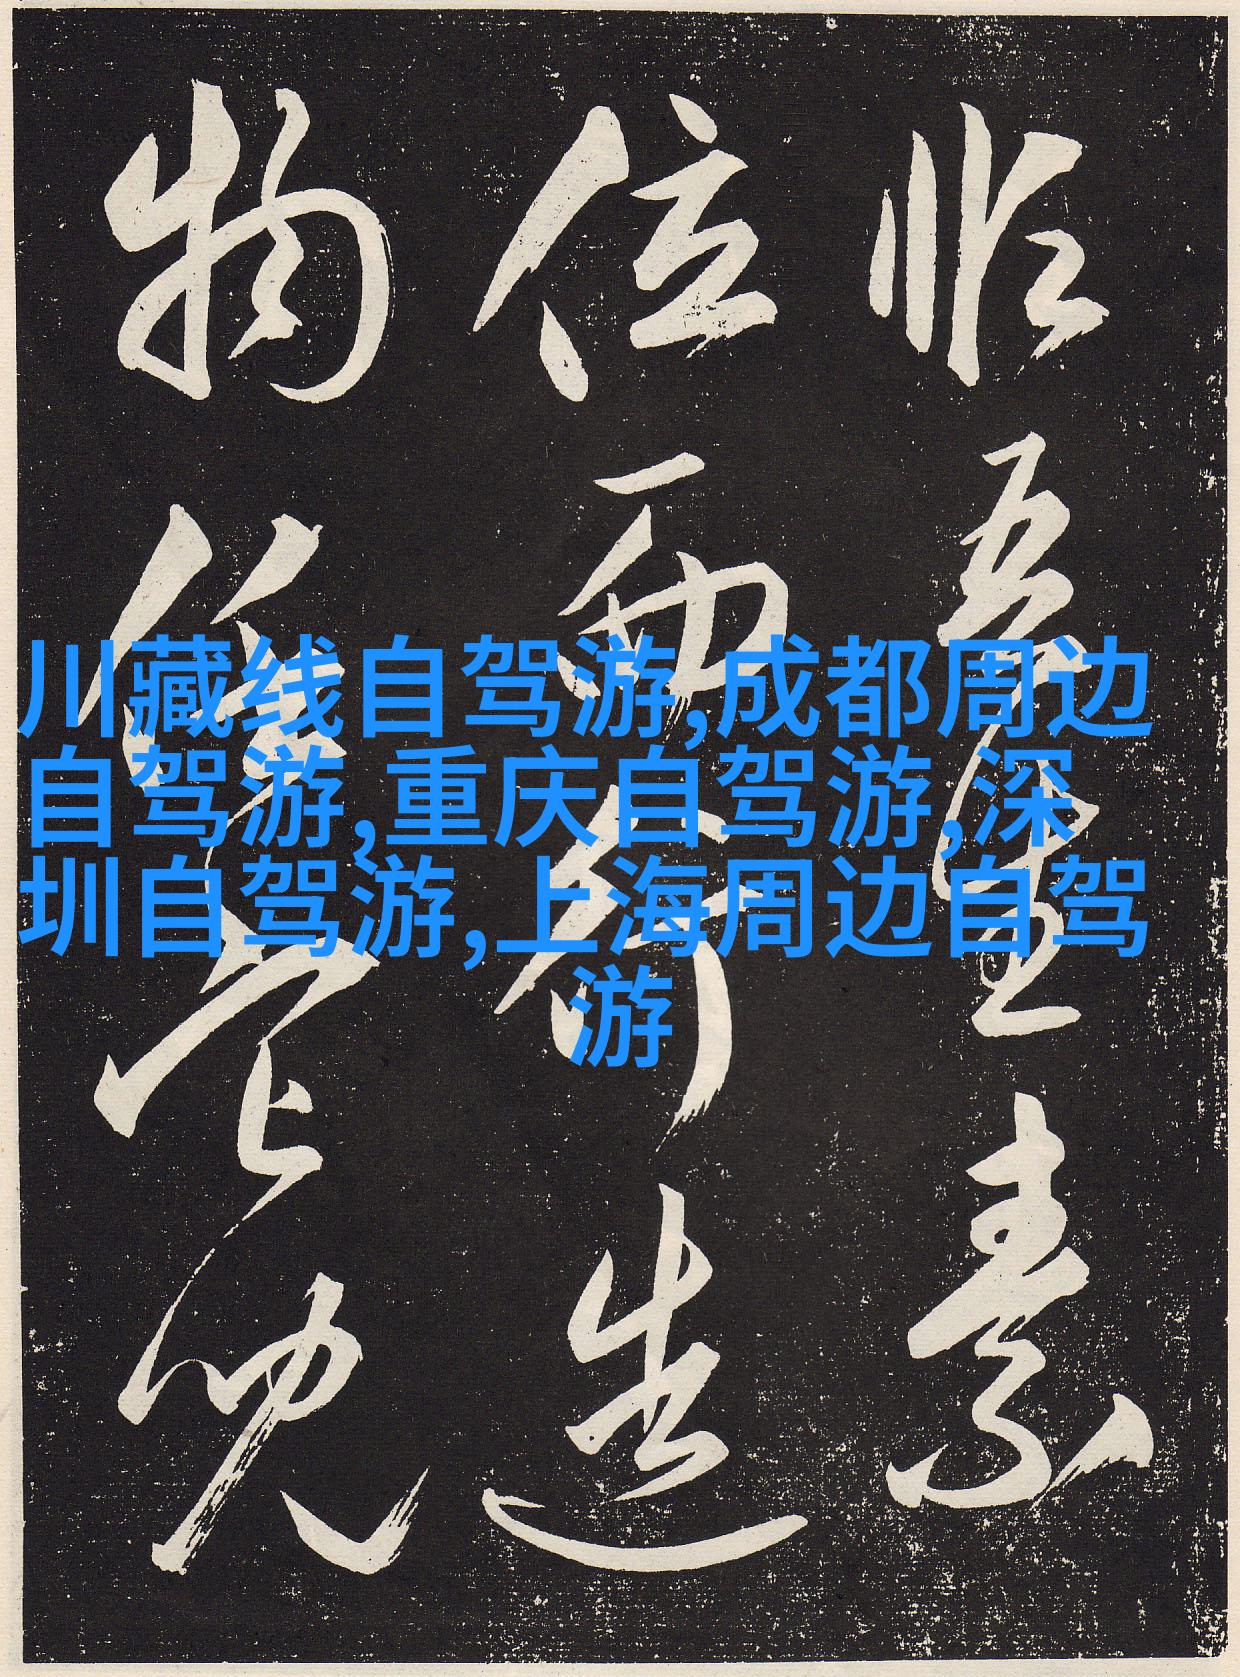 吾素
位而行造
物
川藏线自驾游,成都周边
自驾游,重庆自驾游,深
圳自驾游,上海周边自驾
游